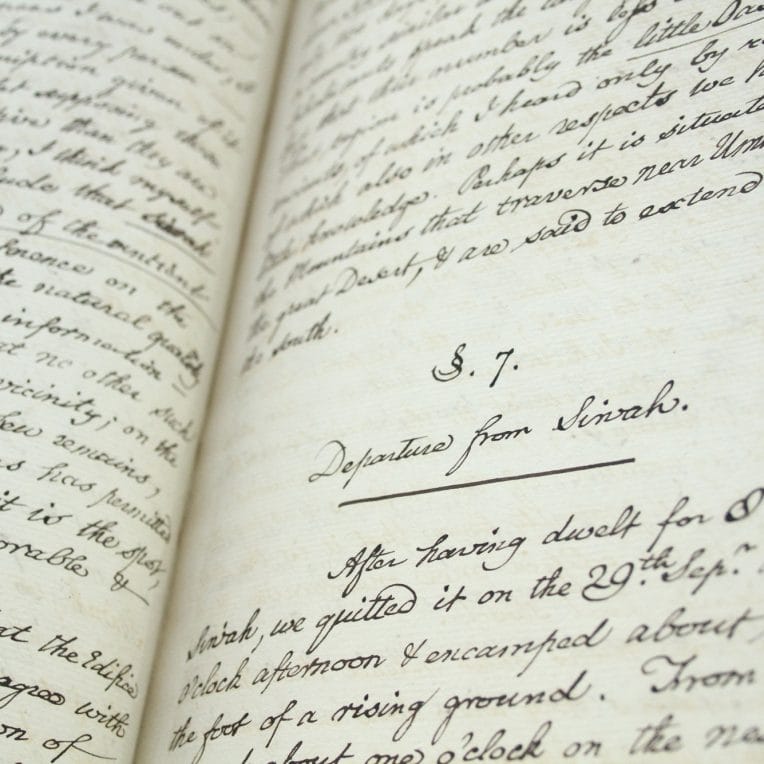 by every person, &
description given of it
supposing these
than they are
I think myself
that Siwah
of the antient
on the
natural quality
information
at no other such
vicinity; on the
few remains,
has permitted
it is the spot,
&
at the Edifice
agree with
on of
similar
speak the
that their number is less
is probably the little Oas
of which I heard only by
of which also in other respects we
little knowledge. Perhaps it is situate
the Mountains that traverse near Umm
the great Desert, & are said to extend
the south.
§. 7.
Departure from Siwah.
After having dwelt for 8
Siwah, we quitted it on the 29th Sepr.
o'clock afternoon & encamped about
the foot of a rising ground. From
about one o'clock on the ne